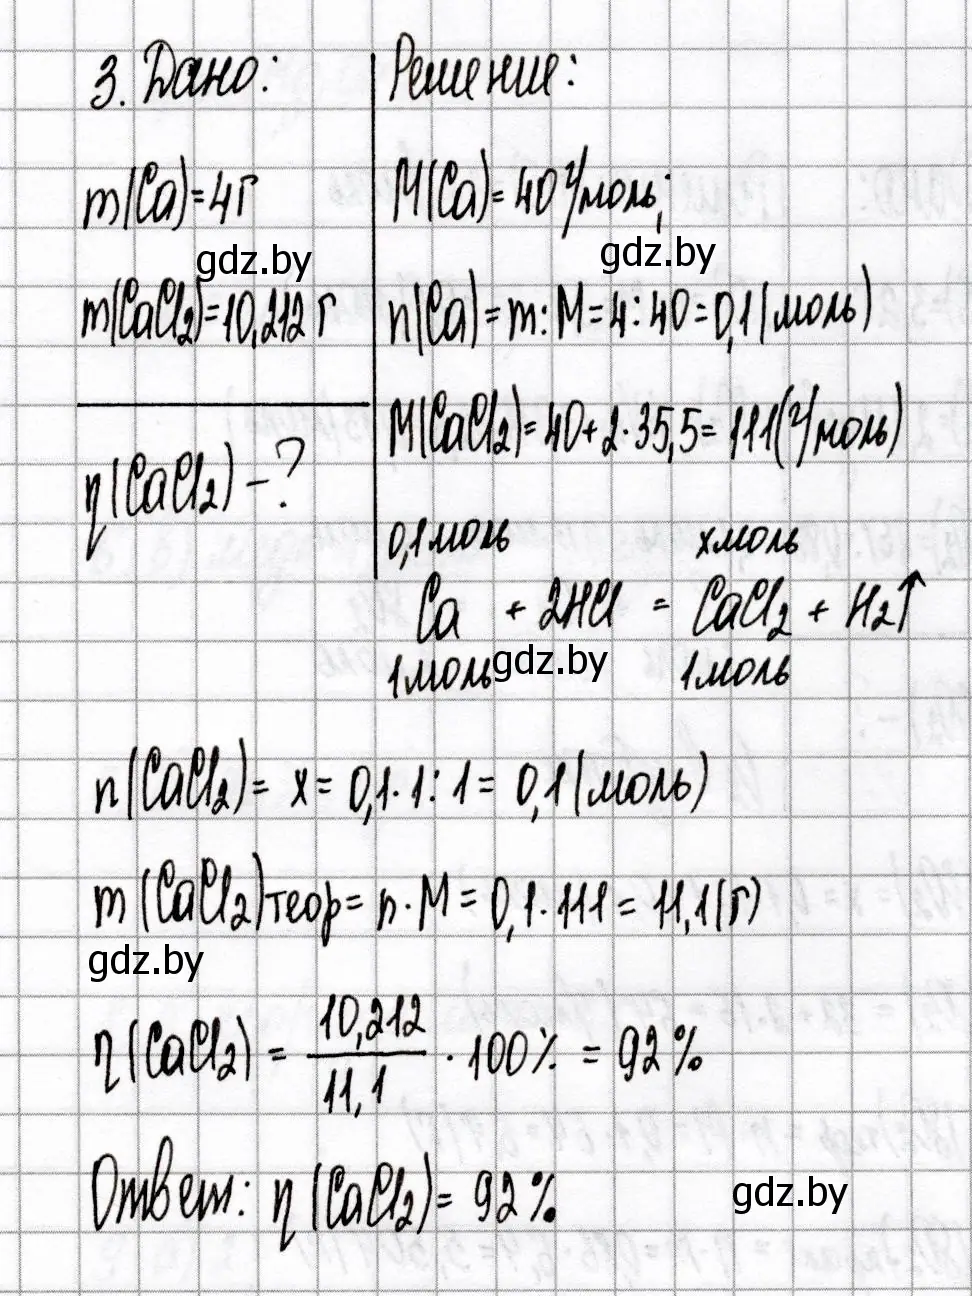 3. Дано:
m(Ca)=4г
m(CaCl₂)=10,212 г
η(CaCl₂) – ?
Решение:
M(Ca)=40 г/моль;
n(Ca)=m:M=4:40=0,1(моль)
M(CaCl₂)=40+2·35,5=111(г/моль)
0,1моль хмоль
Ca + 2HCl = CaCl₂ + H₂↑
1моль 1моль
n(CaCl₂)= x= 0,1·1:1= 0,1(моль)
m(CaCl₂)теор= n·M=0,1·111=11,1(г)
η(CaCl₂) = 10,212/11,1 · 100% = 92%
Ответ: η(CaCl₂)= 92%
gdz.by
gdz.by
gdz.by
gdz.by
gdz.by